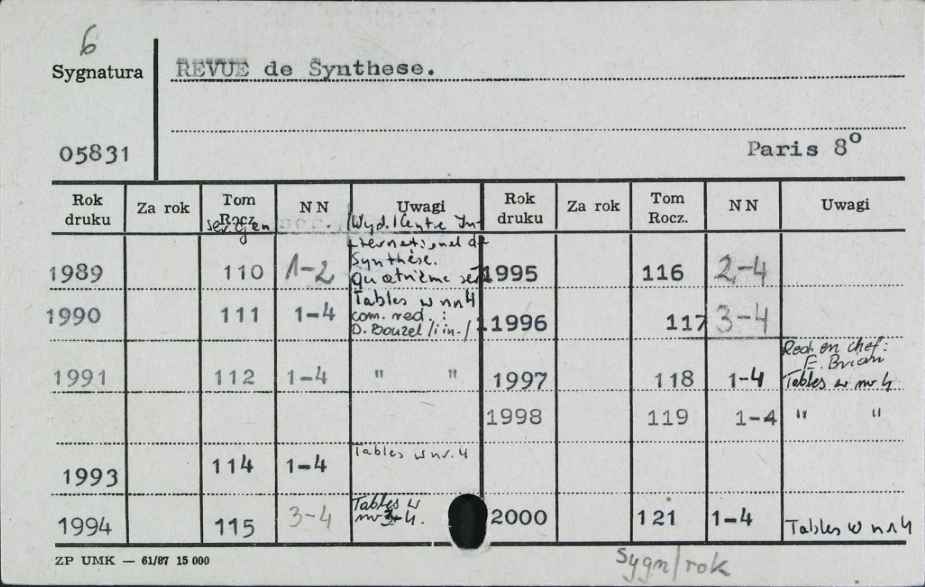 6
Sygnatura REVUE de Synthese.
05831 Paris 8º
Rok druku Za rok Tom Rocz. NN Uwagi Rok druku Za rok Tom Rocz. NN Uwagi
Wyd. Centre In-
ternational de
Synthése.
1989 110 1-2 Quatrième 1995 116 2-4
1990 111 1-4 Tables w nr 4 1996 117 3-4
com. red. :
D. Bouzel /i in./
Red. en chef:
E. Brian
1991 112 1-4 " " 1997 118 1-4 Tables w nr 4.
1998 119 1-4 " "
1993 114 1-4 Tables w nr. 4
1994 115 3-4 Tables w nr 3-4. 2000 121 1-4 Tables w nr 4
ZP UMK — 61/87 15 000
Sygn/rok